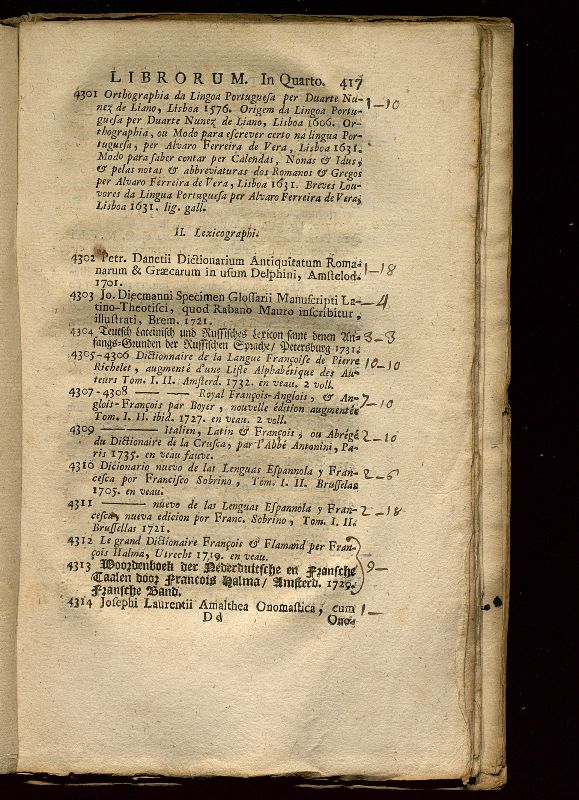 LIBRORUM. In Quarto. 417
4301 Orthographia da Lingoa Portugueſa per Duarte Nu- 1—10
nez de Liano, Lisboa 1576. Origem da Lingoa Portu-
gueſa per Duarte Nunez de Liano, Lisboa 1606. Or-
thographia, ou Modo para eſcrever certo na lingua Por-
tugueſa, per Alvaro Ferreira de Vera, Lisboa 1631.
Modo para ſaber contar per Calendas, Nonas & Idus,
& pelas notas & abbreviaturas dos Romanos & Gregos
per Alvaro Ferreira de Vera, Lisboa 1631. Breves Lou-
vores da Lingua Portugueſa per Alvaro Ferreira de Vera,
Lisboa 1631. lig. gall.
II. Lexicographi.
4302 Petr. Danetii Dictionarium Antiquitatum Roma-
narum & Græcarum in uſum Delphini, Amſtelod. 1—18
1701.
4303 Jo. Diecmanni Specimen Gloſſarii Manuſcripti La- —4
tino-Theotiſci, quod Rabano Mauro inſcribitur,
illuſtrati, Brem. 1721.
4304 Teutſch Lateiniſch und Ruſſiſches Lexicon ſamt denen An- 3—3
fangs-Gründen der Ruſſiſchen Sprache/ Petersburg 1731.
4305-4306 Dictionaire de la Langue Françoiſe de Pierre
Richelet, augmenté d'une Liſte Alphabétique des Au- 10—10
teurs Tom. I. II. Amſterd. 1732. en veau. 2 voll.
4307-4308 —— —— Royal François-Anglois, & An-
glois-François par Boyer, nouvelle édition augmentée 7—10
Tom. I. II. ibid. 1727. en veau. 2 voll.
4309 ———— Italien, Latin & François, ou Abrégé 2—10
du Dictionaire de la Cruſca, par l'Abbé Antonini, Pa-
ris 1735. en veau fauve.
4310 Dicionario nuevo de las Lenguas Eſpannola y Fran- 2—6
ceſca por Franciſco Sobrino, Tom. I. II. Bruſſelas
1705. en veau.
4311 ———— nuevo de las Lenguas Eſpannola y Fran- 2—18
ceſca, nueva edicion por Franc. Sobrino, Tom. I. II.
Bruſſellas 1721.
4312 Le grand Dictionaire François & Flamand per Fran-
çois Halma, Utrecht 1719. en veau.
4313 Woordenboek der Nederduitſche en Franſche 9—
Taalen door Francois Halma/ Amſterd. 1729.
Franſche Band.
4314 Joſephi Laurentii Amalthea Onomaſtica, cum 1—
D d Ono-